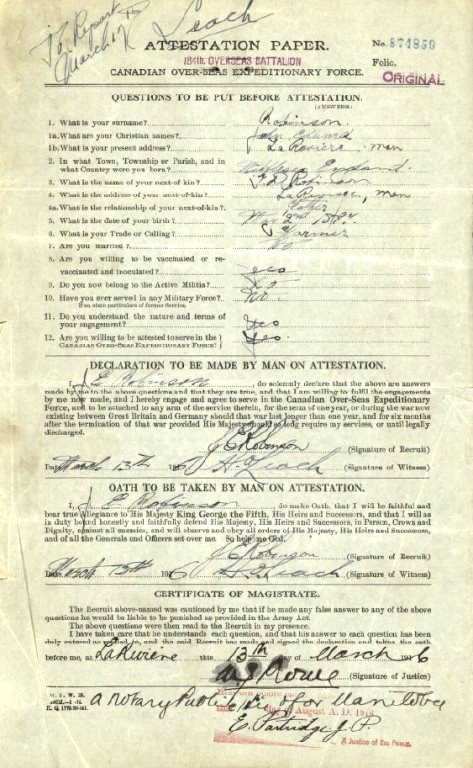 To Report
March 17
Leach
ATTESTATION PAPER.
No. 874850
184th OVERSEAS BATTALION
Folio.
CANADIAN OVER-SEAS EXPEDITIONARY FORCE.
ORIGINAL
QUESTIONS TO BE PUT BEFORE ATTESTATION.
(ANSWERS)
1. What is your surname? Robinson
1a. What are your Christian names? John Edward
1b. What is your present address? LaRiviere Man
2. In what Town, Township or Parish, and in
what Country were you born? England
3. What is the name of your next-of kin? Robinson
4. What is the address of your next-of-kin? Man
4a. What is the relationship of your next-of-kin?
5. What is the date of your birth? 2nd
6. What is your Trade or Calling? Farmer
7. Are you married? No
8. Are you willing to be vaccinated or re-
vaccinated and inoculated? yes
9. Do you now belong to the Active Militia? No
10. Have you ever served in any Military Force? No
If so, state particulars of former Service.
11. Do you understand the nature and terms of
your engagement? Yes
12. Are you willing to be attested to serve in the
CANADIAN OVER-SEAS EXPEDITIONARY FORCE? Yes
DECLARATION TO BE MADE BY MAN ON ATTESTATION.
I, J E Robinson, do solemnly declare that the above are answers
made by me to the above questions and that they are true, and that I am willing to fulfil the engagements
by me now made, and I hereby engage and agree to serve in the Canadian Over-Seas Expeditionary
Force, and to be attached to any arm of the service therein, for the term of one year, or during the war now
existing between Great Britain and Germany should that war last longer than one year, and for six months
after the termination of that war provided His Majesty should so long require my services, or until legally
discharged.
J E Robinson (Signature of Recruit)
Date March 13th 1916 Leach (Signature of Witness)
OATH TO BE TAKEN BY MAN ON ATTESTATION.
I, J E Robinson, do make Oath, that I will be faithful and
bear true Allegiance to His Majesty King George the Fifth, His Heirs and Successors, and that I will as
in duty bound honestly and faithfully defend His Majesty, His Heirs and Successors, in Person, Crown and
Dignity, against all enemies, and will observe and obey all orders of His Majesty, His Heirs and Successors,
and of all the Generals and Officers set over me. So help me God.
J E Robinson (Signature of Recruit)
Date March 13th 1916 Leach (Signature of Witness)
CERTIFICATE OF MAGISTRATE.
The Recruit above-named was cautioned by me that if he made any false answer to any of the above
questions he would be liable to be punished as provided in the Army Act.
The above questions were then read to the Recruit in my presence.
I have taken care that he understands each question, and that his answer to each question has been
duly entered as replied to, and the said Recruit has made and signed the declaration and taken the oath
before me, at LaRiviere this 13th day of March 1916
Rowe (Signature of Justice)
a Notary Public for Manitoba
of August A.D. 1916
E. Partridge J.P.
A Justice of the Peace.